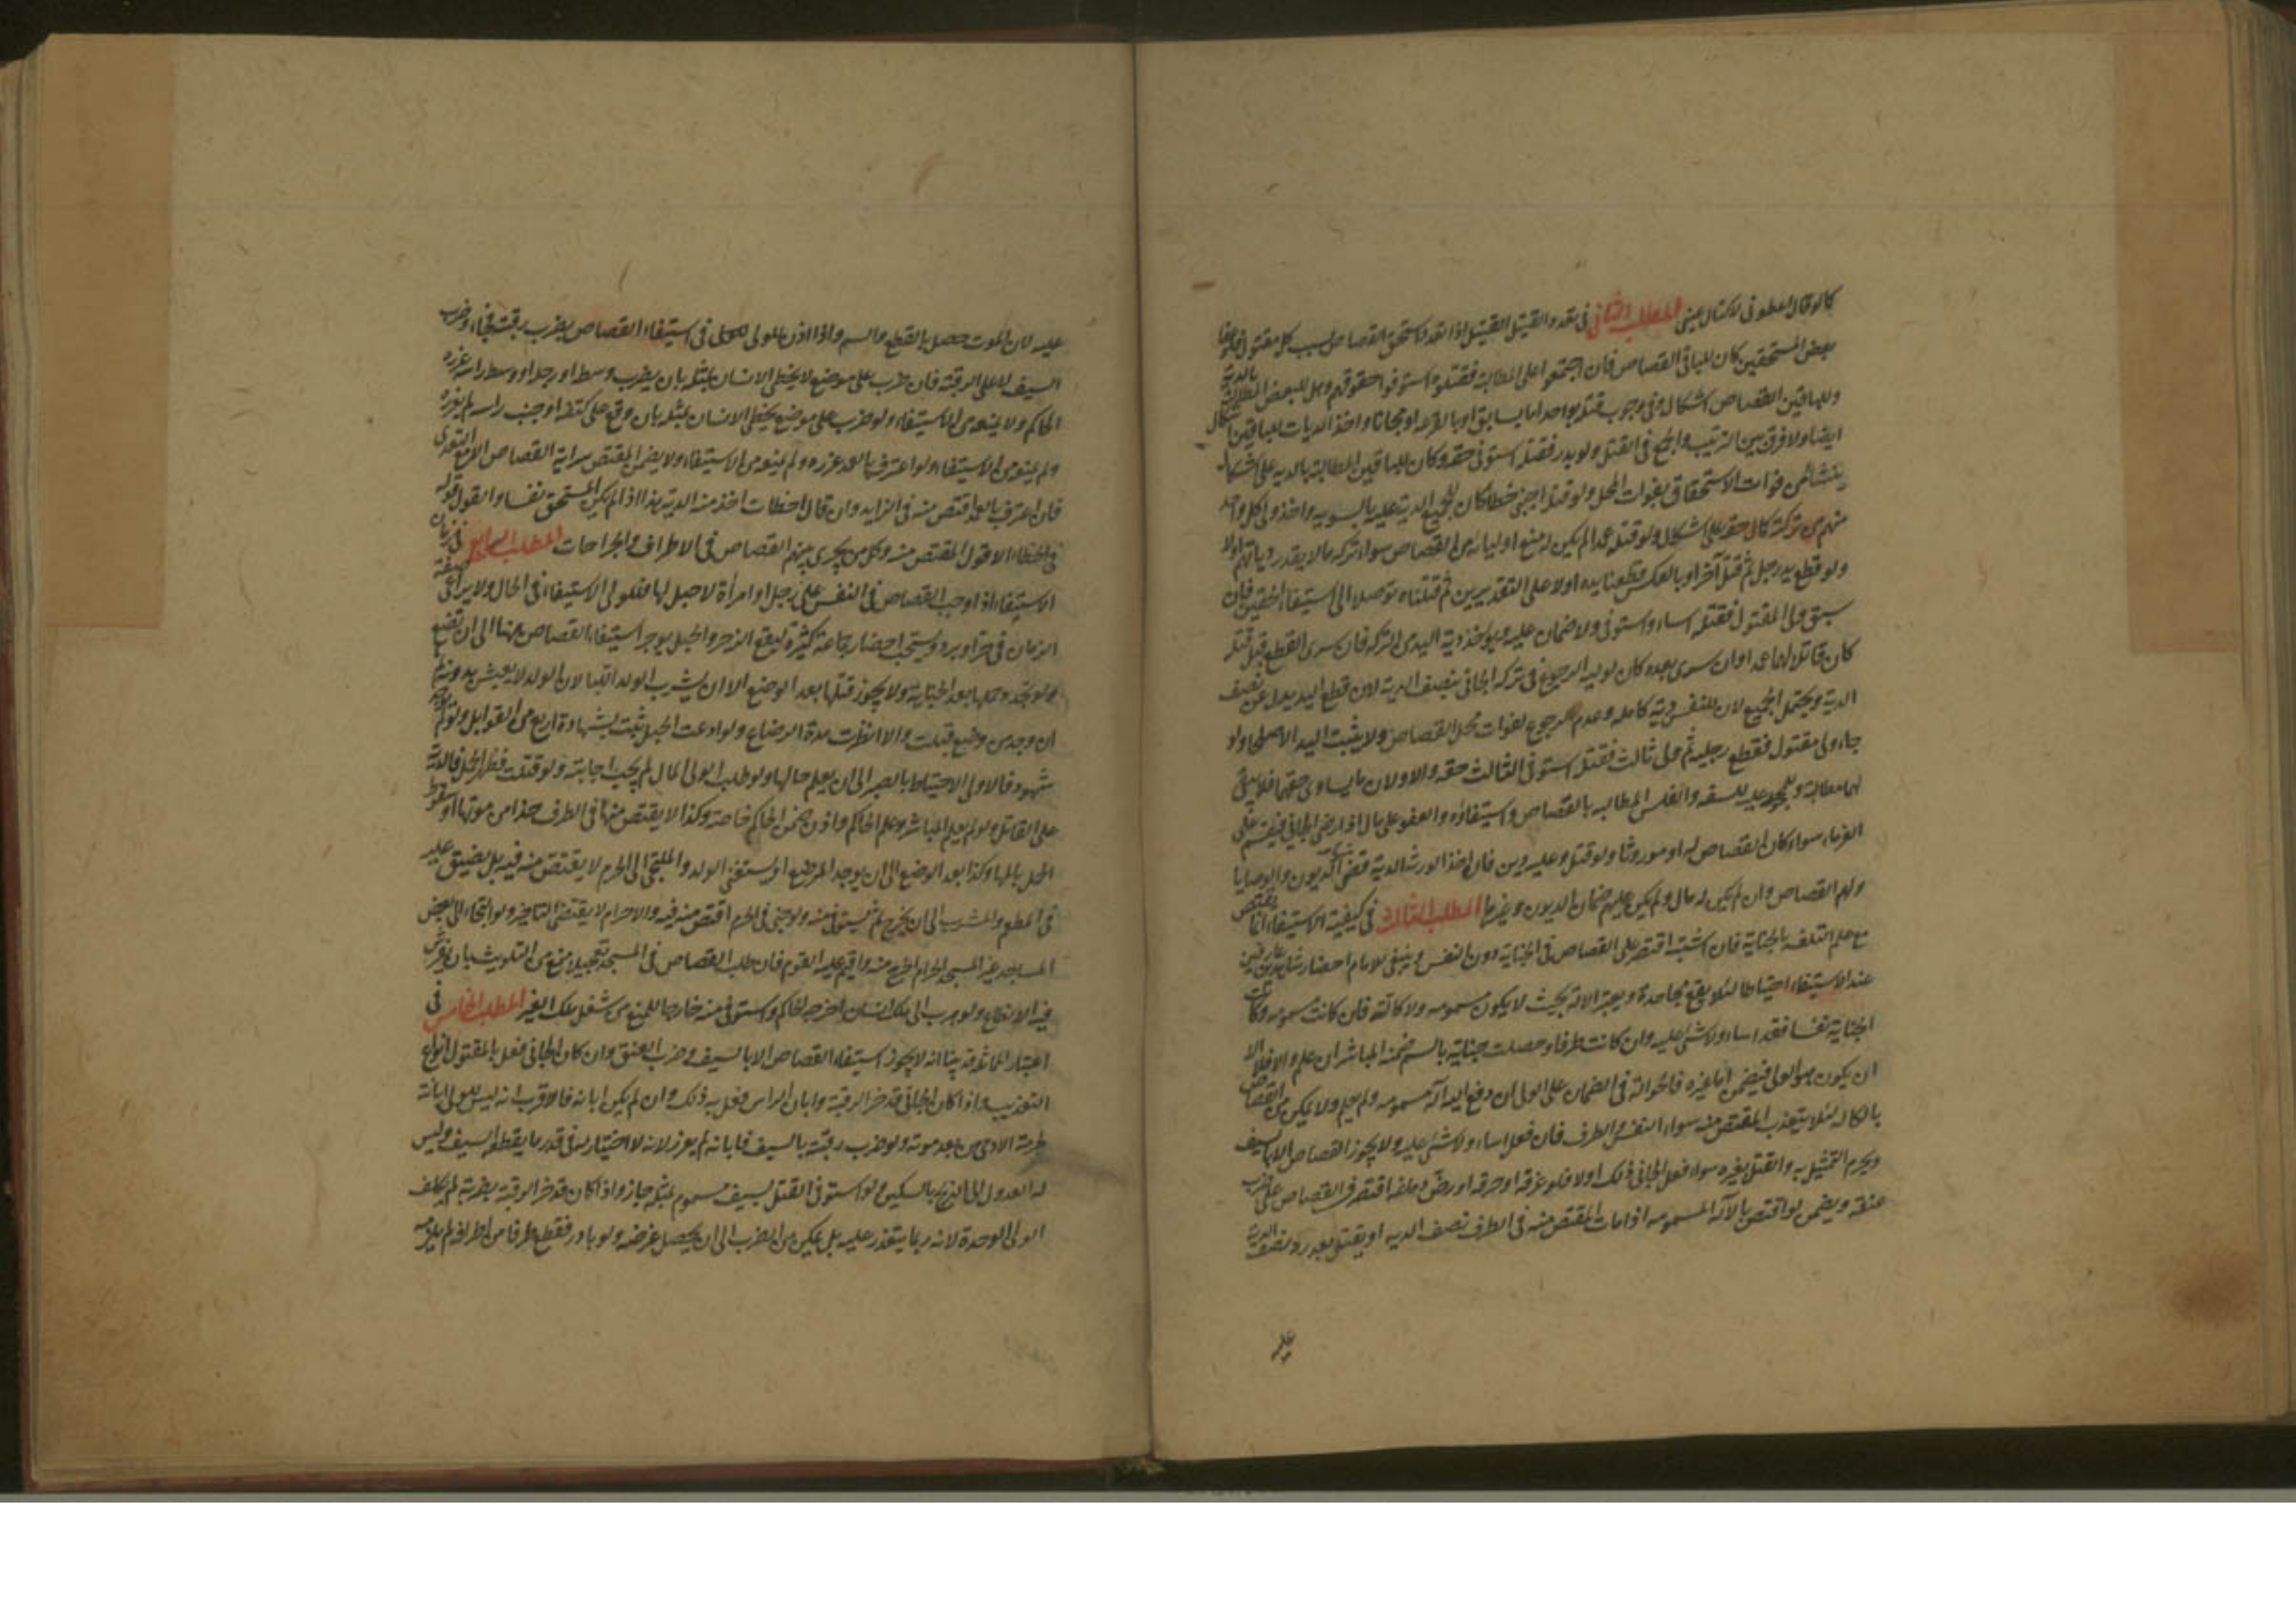 كما لو قال اعطوني لاكتال عني المطلب الثاني في تعدد القتيل القتيل اذا تعدد استحق القصاص بسبب كل مقتول فلو عفا
بعض المستحقين كان للباقي القصاص فان اجتمعوا على المطالبة فقتلوه استوفوا حقوقهم وهل للبعض المطالبة بالدية
وللباقين القصاص اشكال وفي وجوب قتله بواحد اما بسابق او بالقرعة او مجانا واخذ الديات للباقين اشكال
ايضا ولا فرق بين الترتيب والجمع في القتل ولو بدر فقتله استوفى حقه وكان للباقين المطالبة بالدية على اشكال
ينشا من فوات الاستحقاق بفوات المحل ولو قتله اجنبي خطا كان للجميع الدية عليه بالسوية واخذ ولي كل واحد
منهم من تركته كمال حقه على اشكال ولو قتله عمدا لم يكن له منع اوليائه من القصاص سواء ترك مالا يقدر دياتهم اولا
ولو قطع يد رجل ثم قتل آخر او بالعكس قطعنا يده اولا على التقديرين ثم قتلناه توصلا الى استيفاء الحقين فان
سبق ولي المقتول فقتله اساء واستوفى ولا ضمان عليه ويؤخذ دية اليد من التركة فان سرى القطع قبل قتله
كان قاتلا لهما عمدا وان سرى بعده كان لوليه الرجوع في تركة الجاني بنصف الدية لان قطع اليد بدل عن نصف
الدية ويحتمل الجميع لان للنفس دية كاملة وعدم الرجوع لفوات محل القصاص ولا يثبت الدية الا صلحا ولو
جاء ولي مقتول فقطع رجليه ثم ولي ثالث فقتل استوفى الثالث حقه والاولان ما يساوي حقهما فلا يبقى
لهما مطالبة وللمحجور عليه للسفه والفلس المطالبة بالقصاص واستيفاؤه والعفو على مال اذا رضي الجاني فيقسم على
الغرماء سواء كان القصاص له او موروثا ولو قتل وعليه دين فان اخذ الورثة الدية قضي منها الديون والوصايا
ولهم القصاص وان لم يكن له مال ولم يكن عليهم ضمان الديون وغيرها المطلب الثالث في كيفية الاستيفاء انما يقتص
مع علم التلف بالجناية فان اشتبه اقتصر على القصاص في الجناية دون النفس وينبغي للامام احضار شاهدين عارفين
عند الاستيفاء احتياطا لئلا يقع مجاحدة ويعتبر الآلة بحيث لا يكون مسمومة ولا كالّة فان كانت مسمومة وكانت
الجناية نفسا فقد اساء ولا شيء عليه وان كانت طرفا وحصلت جناية بالسم ضمنه المباشر ان علم والا فلا الا
ان يكون هو الولي فيضمن اما غيره فالحوالة في الضمان على الولي ان دفع اليه آلة مسمومة ولم يعلم ولا يمكن من القصاص
بالكالة لئلا يتعذب المقتص منه سواء النفس والطرف فان فعل اساء ولا شيء عليه ولا يجوز القصاص الا بالسيف
ويحرم التمثيل به والقتل بغيره سواء فعل الجاني ذلك اولا فلو غرقه او حرقه او رضّ دماغه اقتصر في القصاص على ضرب
عنقه ويضمن لو اقتص بالآلة المسمومة اذا مات المقتص منه في الطرف نصف الدية او يقتل بعد رد نصف الدية
عليه
عليه لان الموت حصل بالقطع والسم واذا اذن للولي في استيفاء القصاص بضرب رقبته فجاء وضرب
السيف لا على الرقبة فان ضرب على موضع لا يخطئ الانسان بمثله بان يضرب وسطه او رجله او وسط راسه عزره
الحاكم ولا يمنعه من الاستيفاء ولو ضرب على موضع يخطئ الانسان بمثله بان وقع على كتفه او جنب راسه لم يعزره
ولم يمنعه من الاستيفاء ولو اعترف بالعمد عزره ولم يمنعه من الاستيفاء ولا يضمن المقتص سراية القصاص الا مع التعدي
فان اعترف بالعمد اقتص منه في الزايد وان قال اخطات اخذ منه الدية هذا اذا لم يكن المستحق نفسا والقول قوله
في الخطاء لا قول المقتص منه وكل من يجري بينهم القصاص في النفس يجري في الاطراف والجراحات المطلب الرابع في زمان
الاستيفاء اذا وجب القصاص في النفس على رجل او امراة لا حبل لها فللولي الاستيفاء في الحال ولا يراعى صفة
الزمان في حر او برد ويستحب احضار جماعة كثيرة ليقع الزجر والحبلى يؤخر استيفاء القصاص منها الى ان تضع
ولو تجدد حملها بعد الجناية ولا يجوز قتلها بعد الوضع الا ان يشرب الولد اللبا لان الولد لا يعيش بدونه ثم
ان وجد من يرضع قتلت والا انتظرت مدة الرضاع ولو ادعت الحبل ثبت بشهادة اربع من القوابل ولو لم يوجد
شهود فالاولى الاحتياط بالصبر الى ان يعلم حالها ولو طلب الولي المال لم يجب اجابته ولو قتلت فظهر الحمل فالدية
على القاتل ولو لم يعلم المباشر وعلم الحاكم واذن ضمن الحاكم خاصة وكذا لا يقتص منها في الطرف حذرا من موتها او سقوط
الحمل بالمها وكذا بعد الوضع الى ان يوجد المرضع او يستغني الولد والملتجئ الى الحرم لا يقتص منه فيه بل يضيق عليه
في المطعم والمشرب الى ان يخرج ثم يستوفى منه ولو جنى في الحرم اقتص منه فيه والاحرام لا يقتضي التاخير ولو التجاء الى بعض
المساجد غير المسجد الحرام اخرج منه واقيم عليه القود فان طلب القصاص في المسجد تعجيلا منع من التلويث بان يفرش
فيه الانطاع ولو هرب الى ملك انسان اخرجه الحاكم واستوفى منه خارجا للمنع من شغل ملك الغير المطلب الخامس في
اعتبار المماثلة قد بينا انه لا يجوز استيفاء القصاص الا بالسيف وضرب العنق وان كان الجاني فعل بالمقتول انواع
التعذيب واذا كان الجاني قد حز الرقبة وابان الراس فعل به ذلك وان لم يكن ابانه فالاقرب انه ليس للولي ابانته
لحرمة الآدمي بعد موته ولو ضرب رقبته بالسيف فابانه لم يعزر لانه لا اختيار له في قدر ما يقطعه السيف وليس
له العدول الى الذبح بالسكين ولو استوفى القتل بسيف مسموم بمثله جاز واذا كان قد حز الرقبة بضربة لم يكلف
الولي الوحدة لانه ربما يتعذر عليه بل يمكن من الضرب الى ان يحصل غرضه ولو بادر فقطع طرفا من اطرافه لم يلزمه